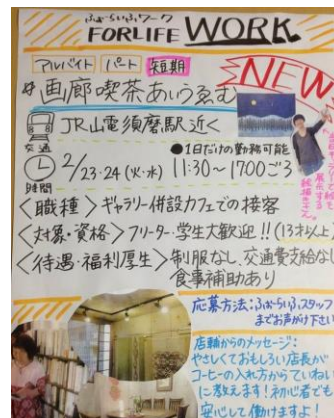 ふぉーらいふワーク
FORLIFE WORK
アルバイト パート 短期
NEW
#画廊喫茶あいうゑむ
交通 JR山電須磨駅近く
●1日だけの勤務可能
時間 2/23・24(火・水) 11:30〜17:00ごろ
<職種>ギャラリー併設カフェでの接客
<対象・資格>フリーター・学生大歓迎!!(13才以上)
<待遇・福利厚生>制服なし、交通費支給なし
食事補助あり
応募方法:ふぉーらいふスタッフ
までお声がけ下さい
店舗からのメッセージ:
やさしくておもしろい店長が
コーヒーの入れ方からていねい
に教えます!初心者でも
安心して働けますよ!